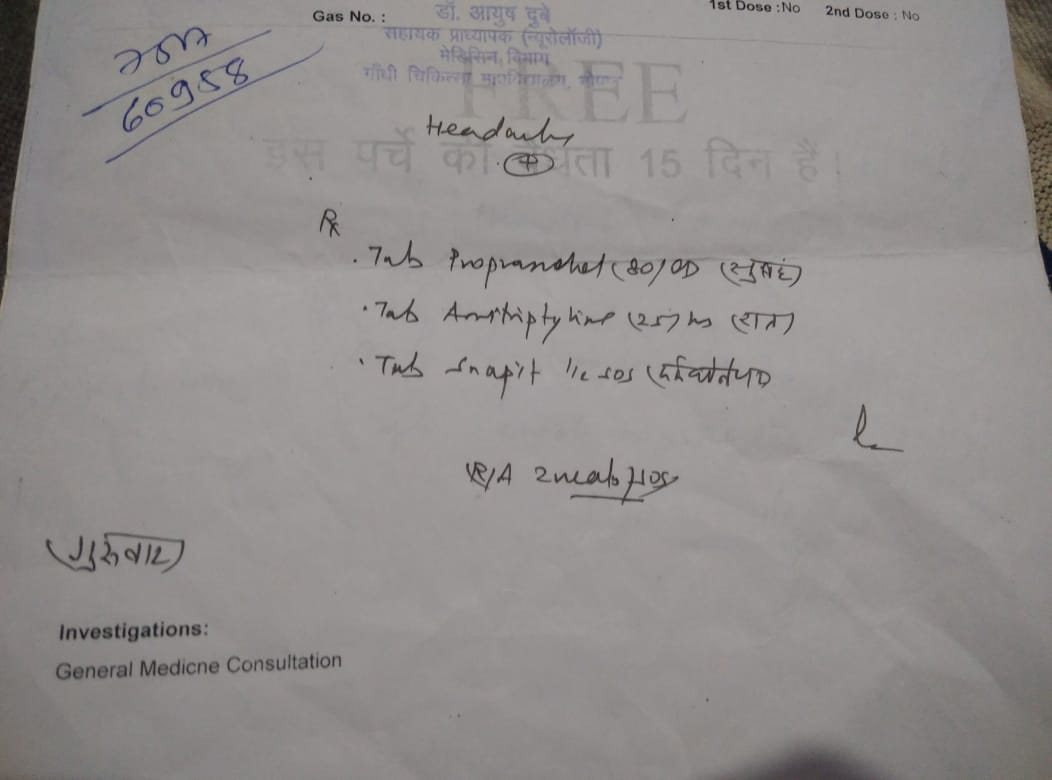 Gas No. :
1st Dose :No 2nd Dose : No
डॉ. आयुष दुबे
सहायक प्राध्यापक (न्यूरोलॉजी)
मेडिसिन विभाग
गाँधी चिकित्सा महाविद्यालय, भोपाल
60958
FREE
इस पर्चे की वैधता 15 दिन है।
Headache
Rx
. Tab Propranolol (80) OD (सुबह)
. Tab Amitriptyline (25) hs (रात)
. Tab Snapit 1/2 SOS
R/A 2 weeks
(गुरुवार)
Investigations:
General Medicne Consultation